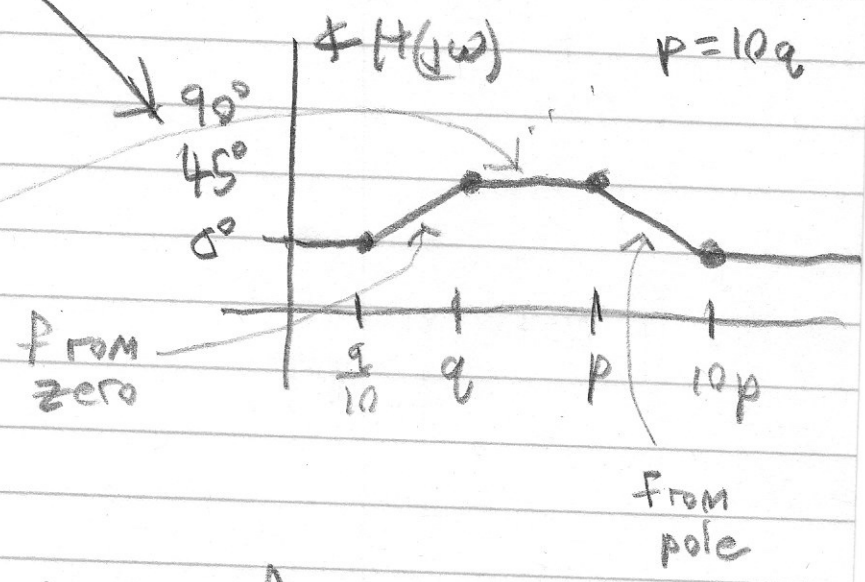 ∠H(jω)
p=10q
90°
45°
0°
From
zero
q/10
q
p
10p
From
pole